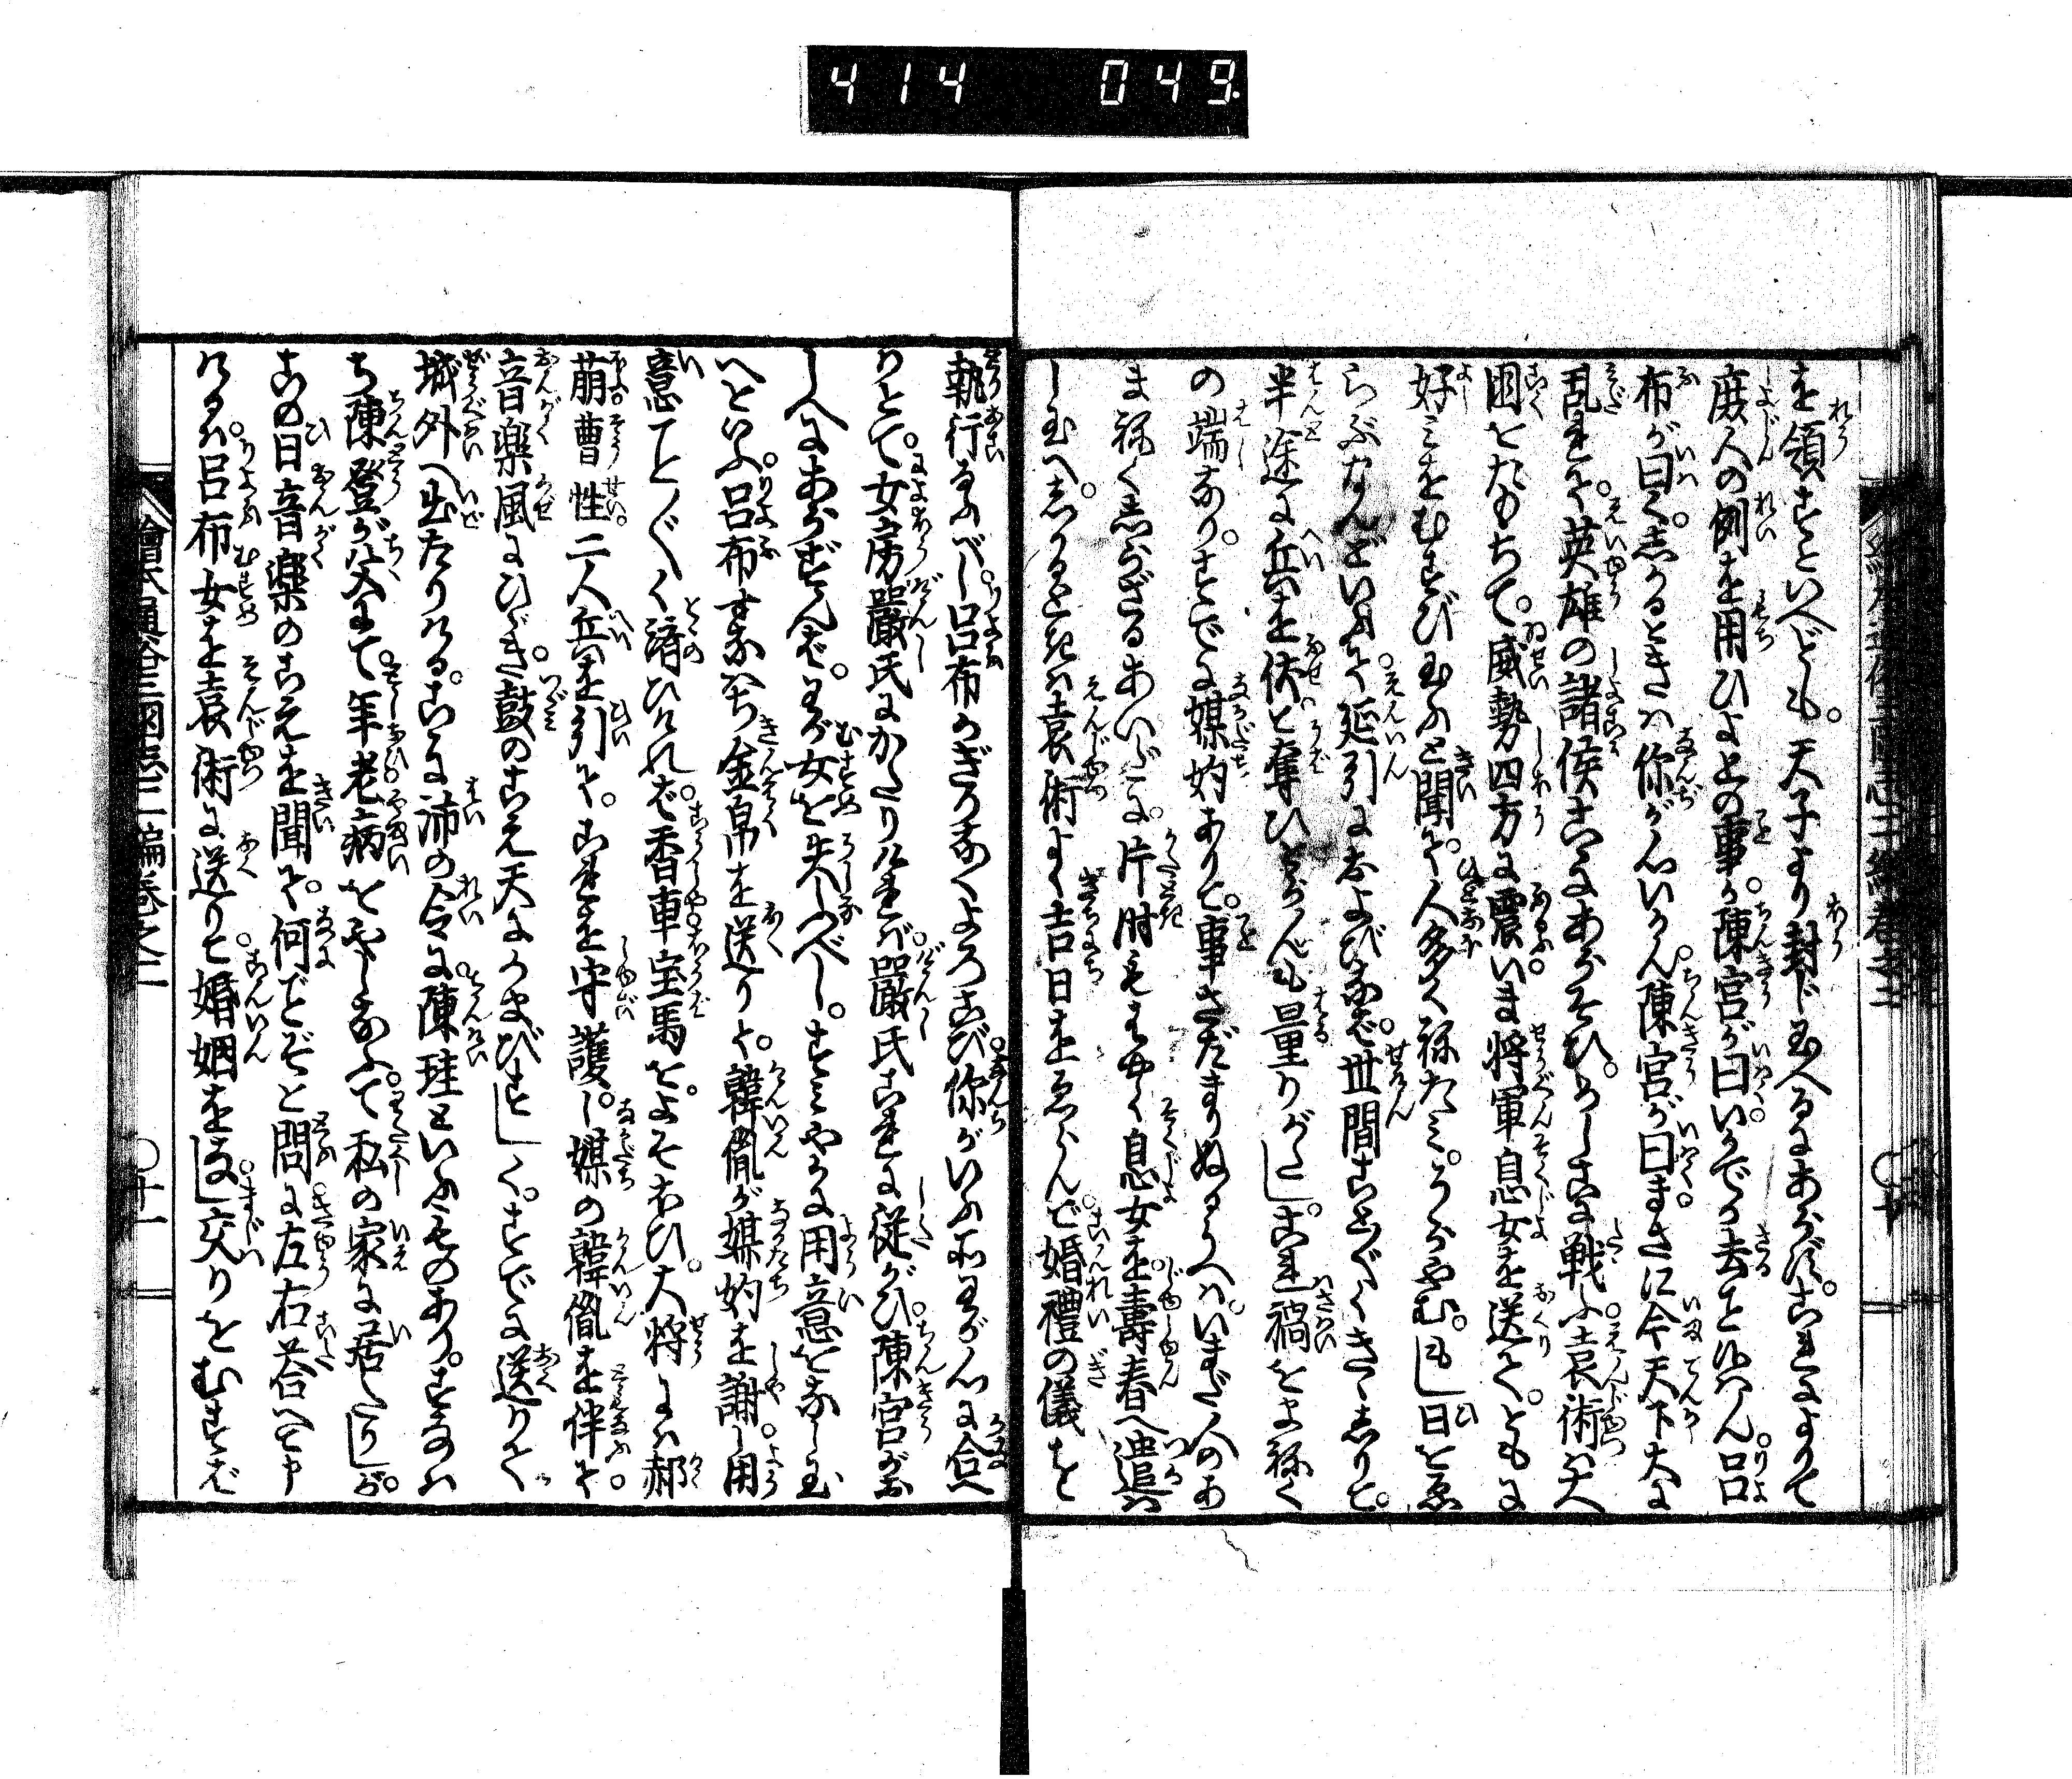 414 049
を領すといへども。天子より封じ玉へるにあらず。これによりて
庶人の例を用ひよとの事か。陳宮が曰いかでか去ことなへん呂
布が曰く。志かるときハ你が心いかん。陳宮が曰まさに今天下大に
乱まて。英雄の諸侯たがひにあらそひ。めしきに戦ふ。袁術ハ大
国をたもちて。威勢四方に震ふ。いま将軍息女を送て。ともに
好ミをむすび玉ふと聞て。人多く祢たミ。うらやむ。もし日をゑ
らぶなんどいふて。延引におよびなバ。世間ことごとくきゝ志りて。
半途に兵を伏て奪ひとらんも量りがたし。これ禍をまねく
の端あり。すでに媒妁ありて。事さだまりぬるうへハ。いまだ人のあ
まねく志らざるあいだに。片時もはやく息女を。壽春へ遣ハ
し玉へ。志かるときハ袁術よく吉日をゑらんで。婚禮の儀をと
執行ふべし。呂布かぎりなくよろこび。你がいふ所わが心に合へ
りとて。女房嚴氏にかたりけれバ。嚴氏これに従がひ。陳宮が言
しへにあらずんバ。わが女を失ふべし。すミやかに用意をなし玉
へといふ。呂布すなハち金帛を送りて。韓胤が媒妁を謝し用
意ことごとく済ひけれバ。香車宝馬をよそおひ。大将にハ郝
萠曹性二人兵を引て。これを守護し。媒の韓胤を伴て。
音楽風にひゞき。鼓のこえ天にかまびすしく。すでに送りて
城外へ出たりける。こゝに沛の令に。陳珪といふものあり。すなハ
ち陳登が父にて。年老病をやしなふて。私の家に居たりしが。
この日音楽のこえを聞て。何ごとぞと問に。左右荅へて申
けるハ。呂布女を袁術に送りて。婚姻をなし。交りをむすバ
繪本通俗三國志二編巻之二
〇十一